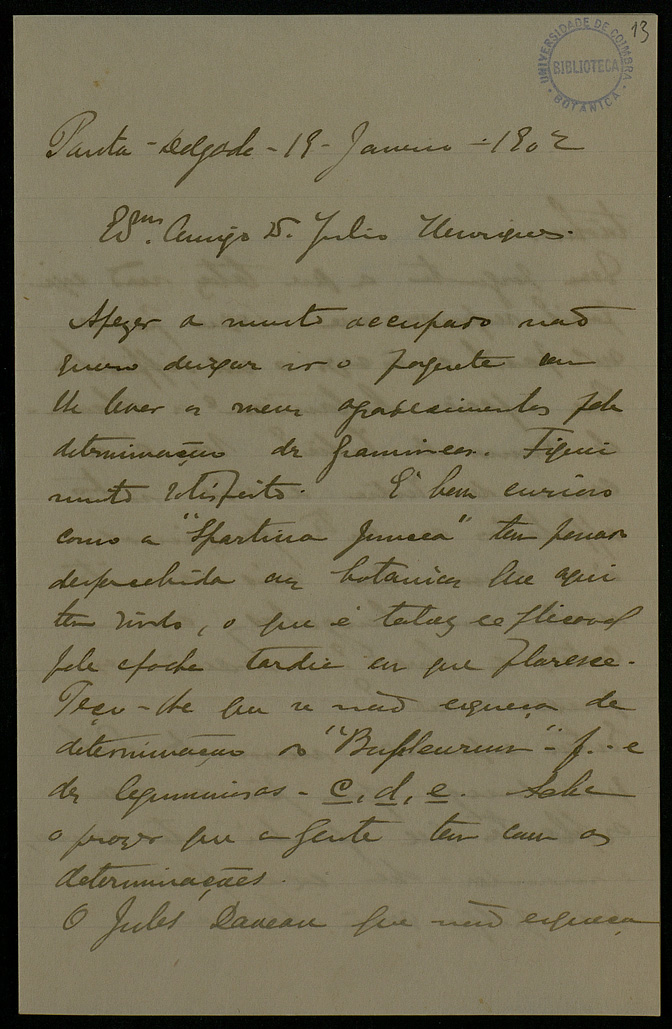 13
UNIVERSIDADE DE COIMBRA
BIBLIOTECA
BOTANICA
Ponta-Delgada-19-Janeiro-1902
Exmo. Amigo Dr. Julio Henriques.
Apezar de muito occupado não
quero deixar ir o paquete sem
lhe levar os meus agradecimentos pela
determinação das gramineas. Fiquei
muito satisfeito. É bem curioso
como a "Spartina juncea" tem passado
despercebida aos botanicos que aqui
tem vindo, o que é talvez explicavel
pela epocha tardia em que floresce.
Peço-lhe que se não esqueça da
determinação do "Bupleurum" - f. - e
das leguminosas - c, d, e. Sabe
o prazer que a gente tem com as
determinações.
O Jules Daveau que não esqueça